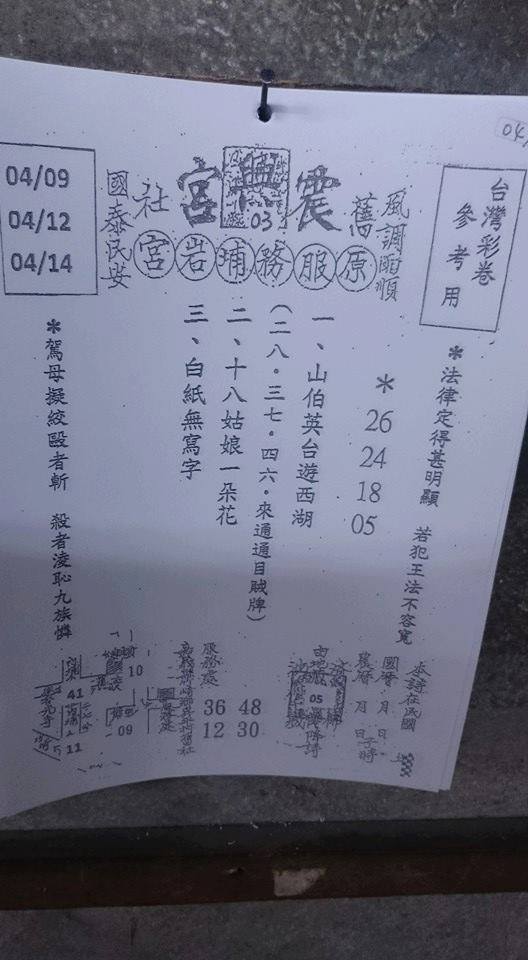 台灣彩卷
參考用
風調雨順
震興宮社
03
國泰民安
舊
原服務埔岩宮
04/09
04/12
04/14
*法律定得甚明顯 若犯王法不容寬
*
26
24
18
05
一、山伯英台遊西湖
(二八.三七.四六.來通通目賊牌)
二、十八姑娘一朵花
三、白紙無寫字
*駕母擬絞毆者斬 殺者淩恥九族憐
國曆 月 日
農曆 月 日子時
05
服務處
36 48
12 30
10
09
41
11